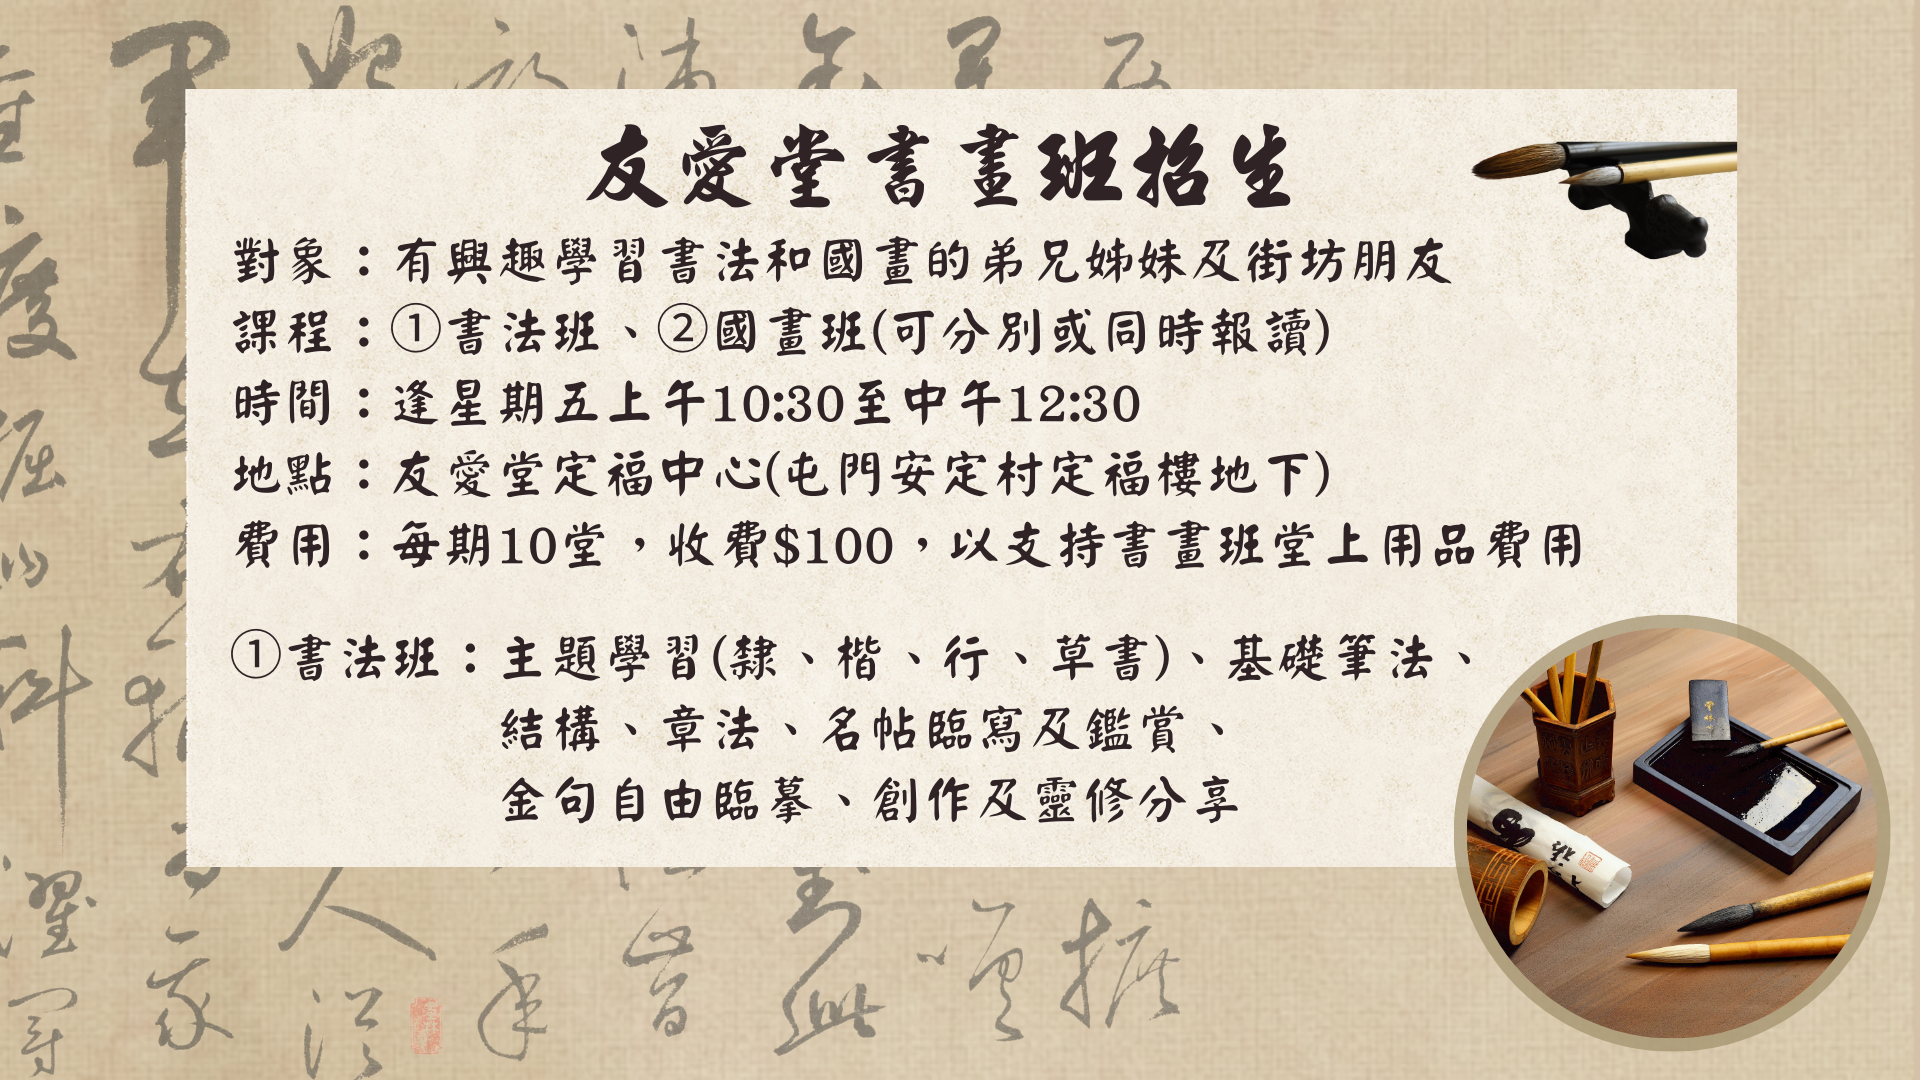 友愛堂書畫班招生
對象：有興趣學習書法和國畫的弟兄姊妹及街坊朋友
課程：①書法班、②國畫班(可分別或同時報讀)
時間：逢星期五上午10:30至中午12:30
地點：友愛堂定福中心(屯門安定村定福樓地下)
費用：每期10堂，收費$100，以支持書畫班堂上用品費用
①書法班：主題學習(隸、楷、行、草書)、基礎筆法、
結構、章法、名帖臨寫及鑑賞、
金句自由臨摹、創作及靈修分享